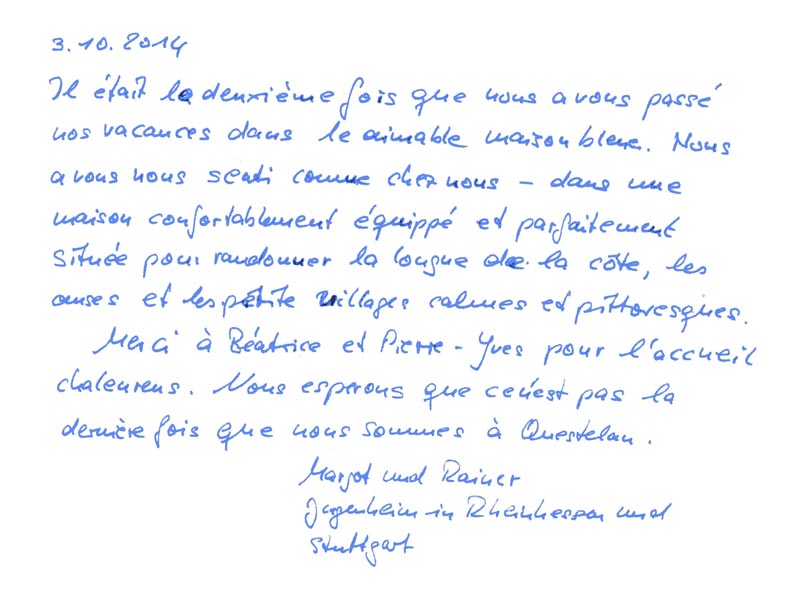 3.10.2014
Il était le deuxième fois que nous avons passé
nos vacances dans le aimable maison bleue. Nous
avons nous senti comme chez nous – dans une
maison confortablement équippé et parfaitement
située pour randonner la longue de la côte, les
anses et les pétite villages calmes et pittoresques.
Merci à Béatrice et Pierre-Yves pour l'accueil
chaleureus. Nous esperons que ce n'est pas la
dernière fois que nous sommes à Questelan.
Margot und Rainer
Jugenheim in Rheinhessen und
Stuttgart